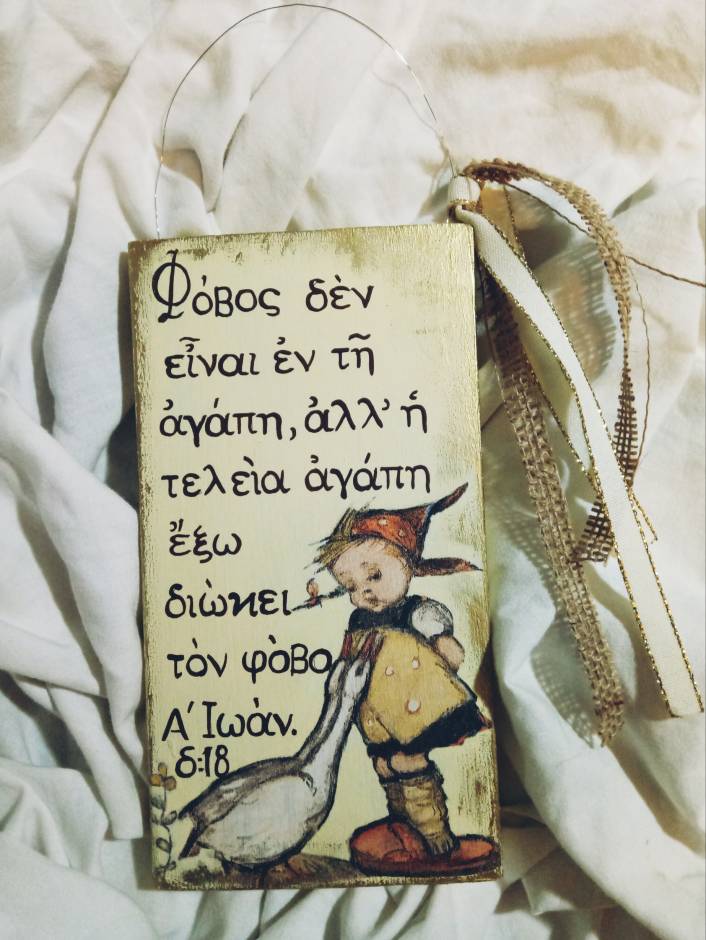 Φόβος δὲν
εἶναι ἐν τῇ
ἀγάπη, ἀλλ' ἡ
τελεὶα ἀγάπη
ἔξω
διὼκει
τὸν φὸβο
Α' Ἰωὰν.
δ:18